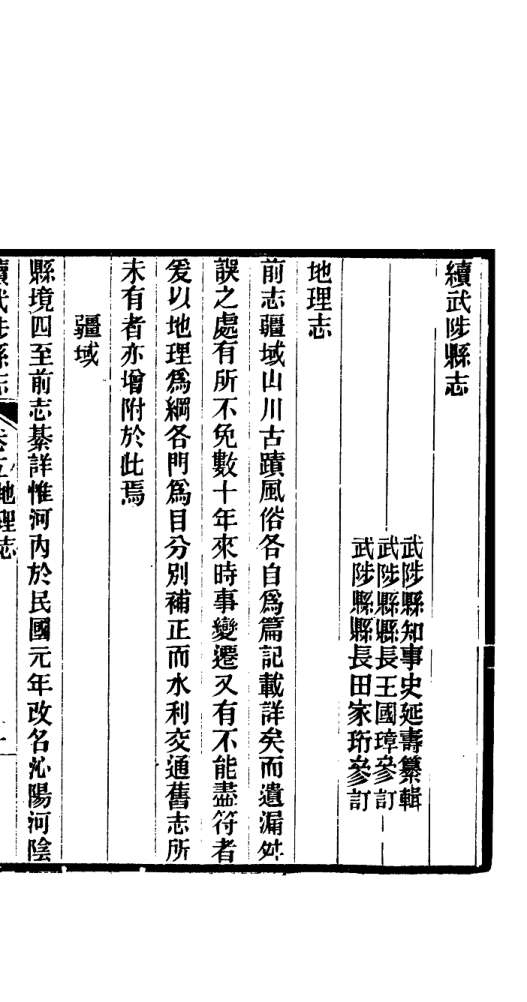 續武陟縣志
武陟縣知事史延壽纂輯
武陟縣縣長王國璋參訂
武陟縣縣長田家珩參訂
地理志
前志疆域山川古蹟風俗各自爲篇記載詳矣而遺漏舛
誤之處有所不免數十年來時事變遷又有不能盡符者
爰以地理爲綱各門爲目分別補正而水利交通舊志所
未有者亦增附於此焉
疆域
縣境四至前志綦詳惟河內於民國元年改名沁陽河陰
續武陟縣志 卷五地理志 一